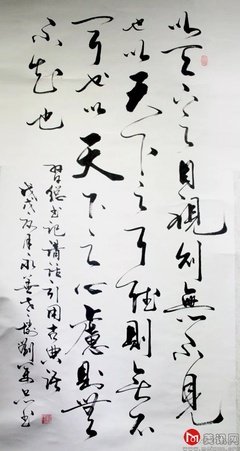 以天下之目視則無不見
也以天下之耳聽則無不
聞也以天下之心慮則無
不知也
習總书記講話引用古典語
戊戌 月 劉 书